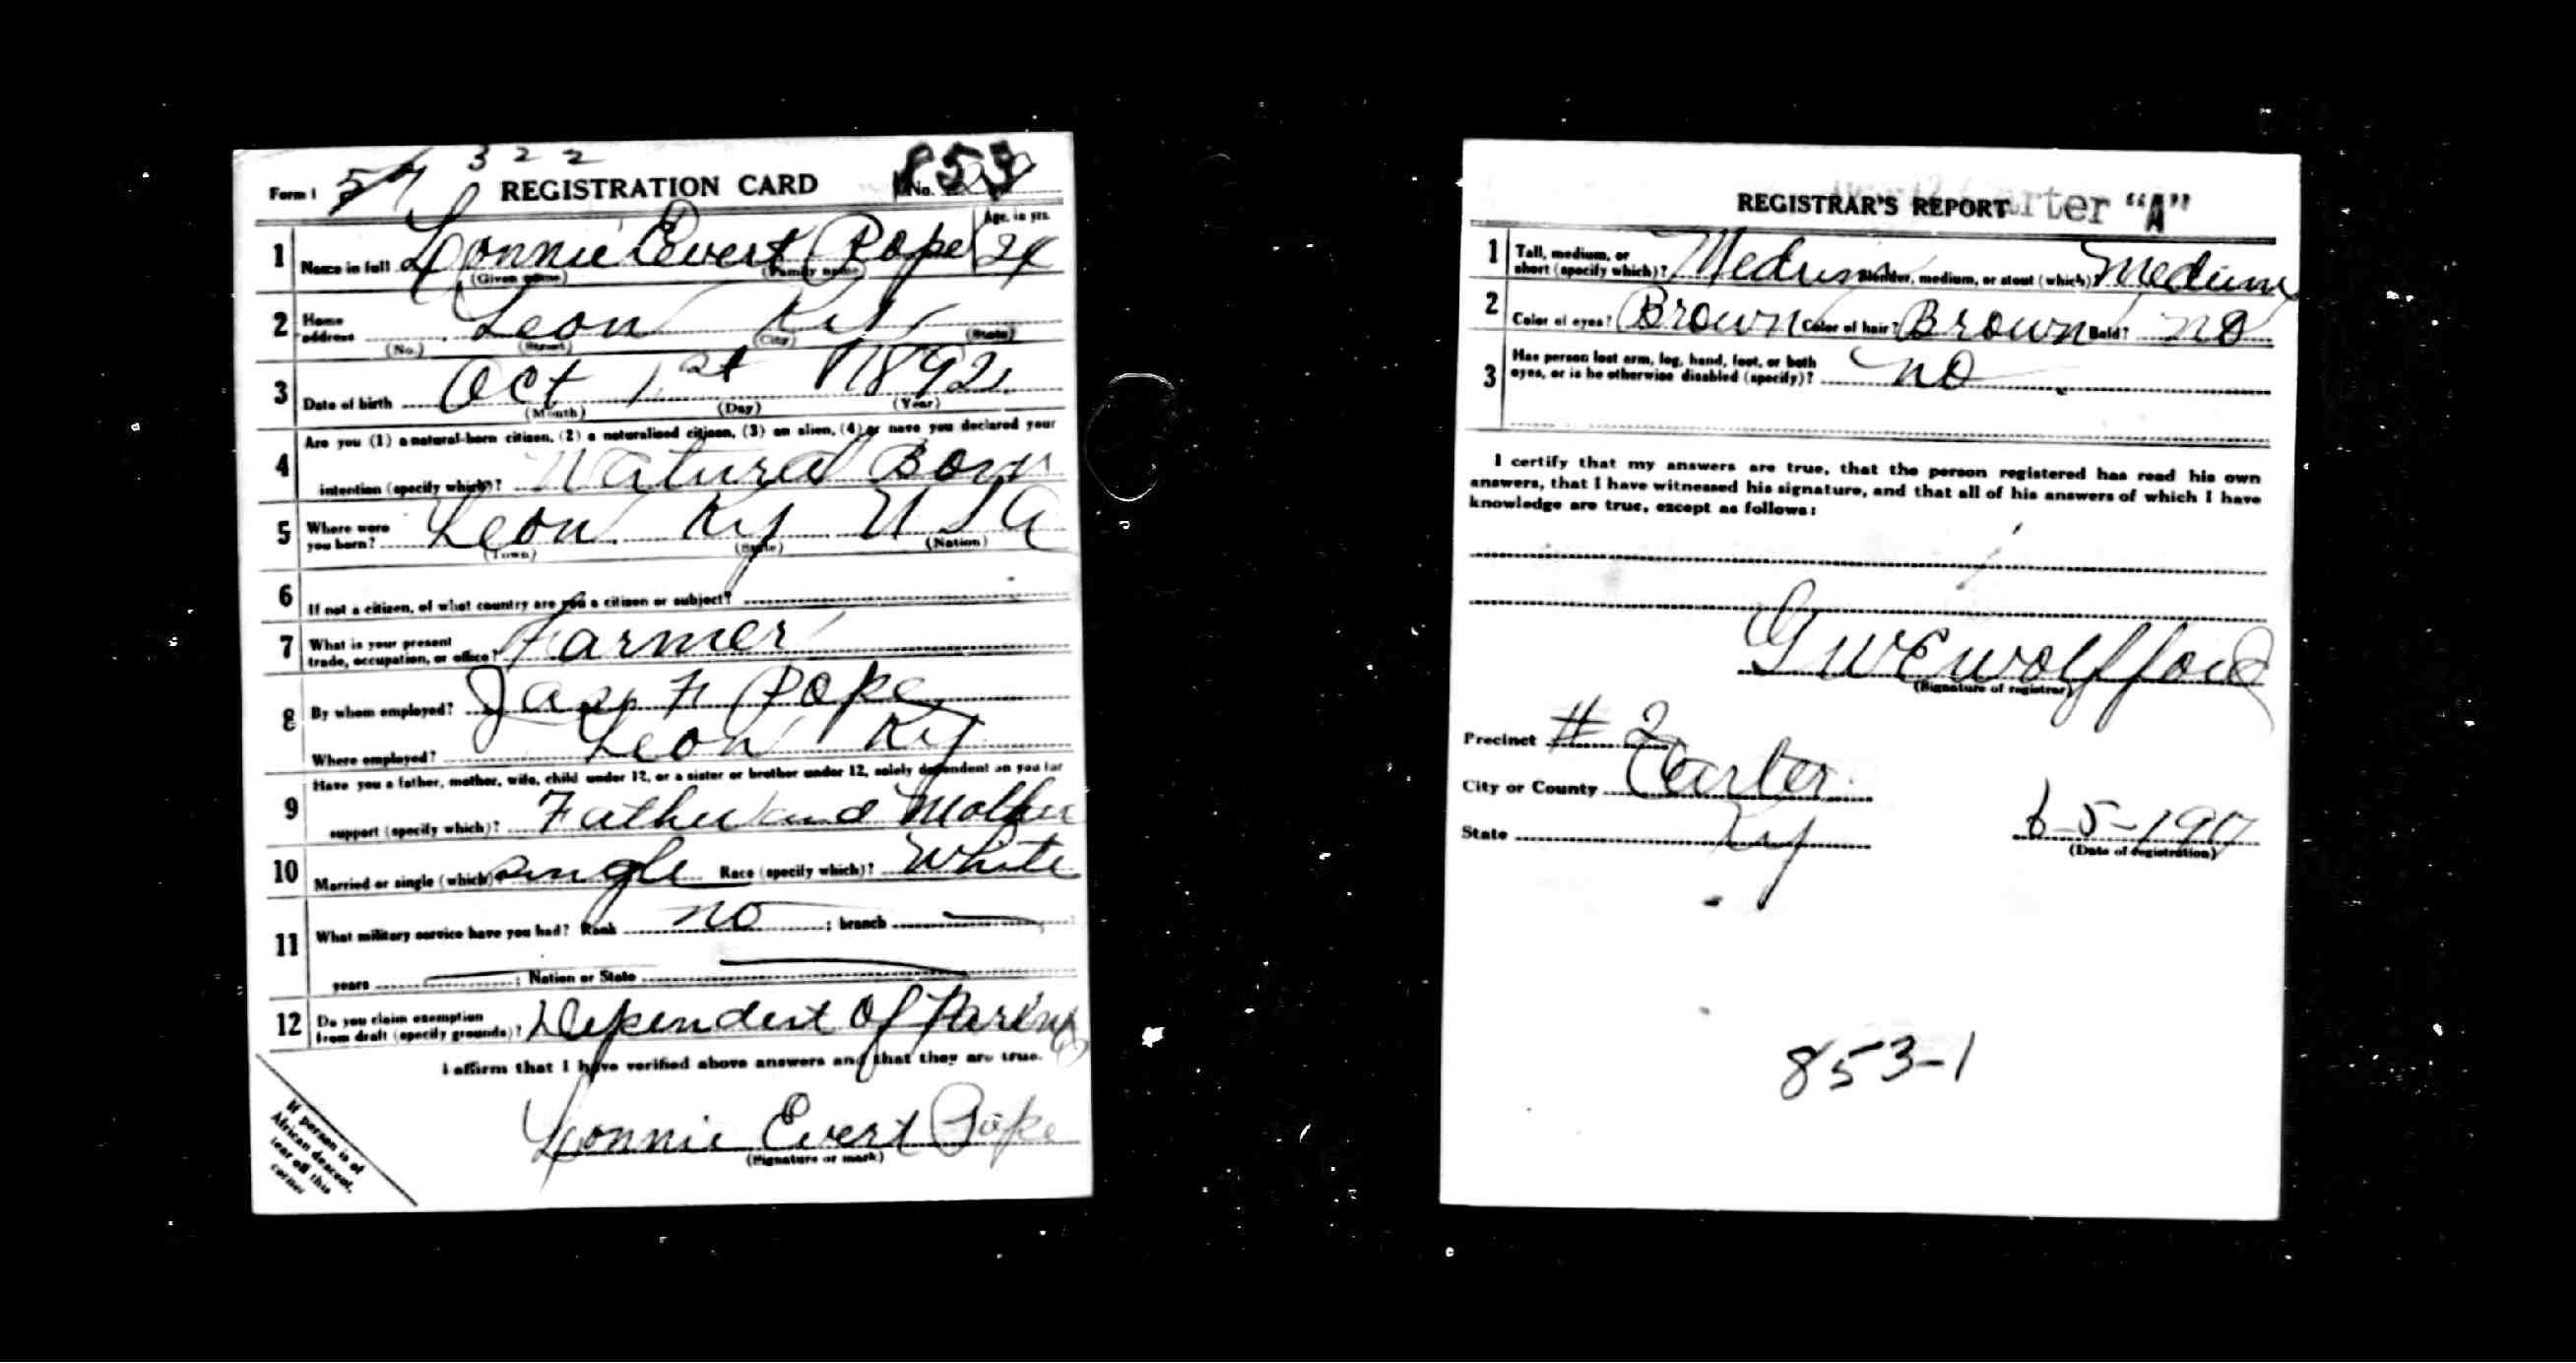 3 2 2
Form 1 REGISTRATION CARD No. 853
1 Name in full Lonnie Evert Pope Age, in yrs. 24
(Given name) (Family name)
2 Home address Leon Ky
(No.) (Street) (City) (State)
3 Date of birth Oct 1st 1892
(Month) (Day) (Year)
Are you (1) a natural-born citizen, (2) a naturalized citizen, (3) an alien, (4) or have you declared your
4 intention (specify which)? Natural Born
5 Where were you born? Leon Ky U S A
(Town) (State) (Nation)
6 If not a citizen, of what country are you a citizen or subject?
7 What is your present trade, occupation, or office? Farmer
8 By whom employed? Pope
Where employed? Leon Ky
Have you a father, mother, wife, child under 12, or a sister or brother under 12, solely dependent on you for
9 support (specify which)? Father and Mother
10 Married or single (which)? single Race (specify which)? White
11 What military service have you had? Rank no ; branch
years ; Nation or State
12 Do you claim exemption from draft (specify grounds)? Dependent of Parents
I affirm that I have verified above answers and that they are true.
Lonnie Evert Pope
(Signature or mark)
If person is of
African descent,
tear off this
corner
REGISTRAR'S REPORT "A"
1 Tall, medium, or short (specify which)? Medium Slender, medium, or stout (which)? Medium
2 Color of eyes? Brown Color of hair? Brown Bald? no
3 Has person lost arm, leg, hand, foot, or both
eyes, or is he otherwise disabled (specify)? no
I certify that my answers are true, that the person registered has read his own
answers, that I have witnessed his signature, and that all of his answers of which I have
knowledge are true, except as follows:
(Signature of registrar)
Precinct # 2
City or County Carter
State Ky 6-5-1917
(Date of registration)
853-1